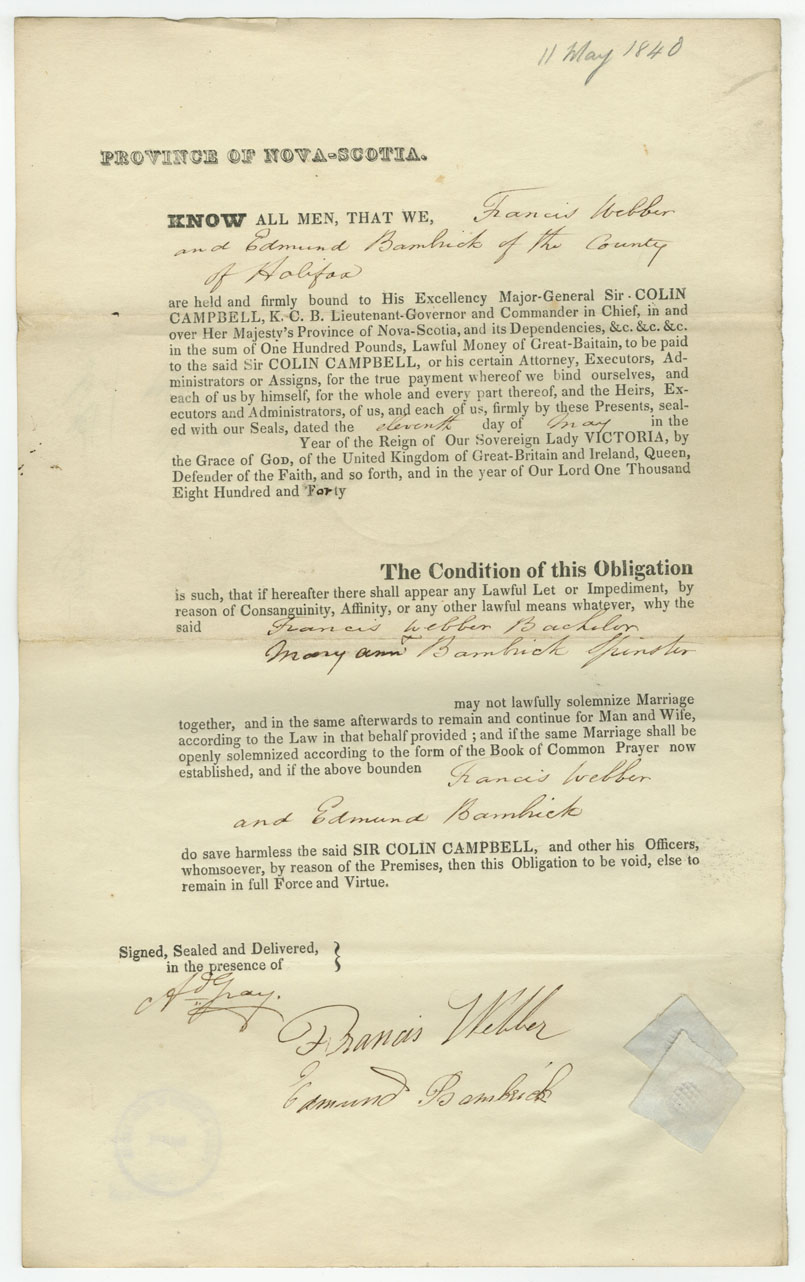 11 May 1840
PROVINCE OF NOVA-SCOTIA.
KNOW ALL MEN, THAT WE, Francis Webber
and Edmund Bambrick of the County
of Halifax
are held and firmly bound to His Excellency Major-General Sir COLIN
CAMPBELL, K. C. B. Lieutenant-Governor and Commander in Chief, in and
over Her Majesty's Province of Nova-Scotia, and its Dependencies, &c. &c. &c.
in the sum of One Hundred Pounds, Lawful Money of Great-Baitain, to be paid
to the said Sir COLIN CAMPBELL, or his certain Attorney, Executors, Ad-
ministrators or Assigns, for the true payment whereof we bind ourselves, and
each of us by himself, for the whole and every part thereof, and the Heirs, Ex-
ecutors and Administrators, of us, and each of us, firmly by these Presents, seal-
ed with our Seals, dated the eleventh day of May in the
Year of the Reign of Our Sovereign Lady VICTORIA, by
the Grace of GOD, of the United Kingdom of Great-Britain and Ireland, Queen,
Defender of the Faith, and so forth, and in the year of Our Lord One Thousand
Eight Hundred and Forty
The Condition of this Obligation
is such, that if hereafter there shall appear any Lawful Let or Impediment, by
reason of Consanguinity, Affinity, or any other lawful means whatever, why the
said Francis Webber Bachelor
Mary ann Bambrick Spinster
may not lawfully solemnize Marriage
together, and in the same afterwards to remain and continue for Man and Wife,
according to the Law in that behalf provided ; and if the same Marriage shall be
openly solemnized according to the form of the Book of Common Prayer now
established, and if the above bounden Francis Webber
and Edmund Bambrick
do save harmless the said SIR COLIN CAMPBELL, and other his Officers,
whomsoever, by reason of the Premises, then this Obligation to be void, else to
remain in full Force and Virtue.
Signed, Sealed and Delivered,
in the presence of
Gray.
Francis Webber
Edmund Bambrick